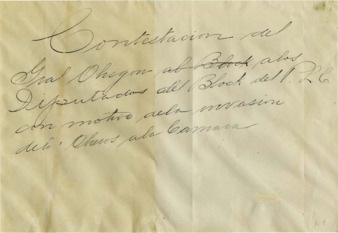 Contestacion del
Gral Obregon al Block a los
Diputados del Block del P. L. C.
con motivo de la invasion
de Obreros a la Camara